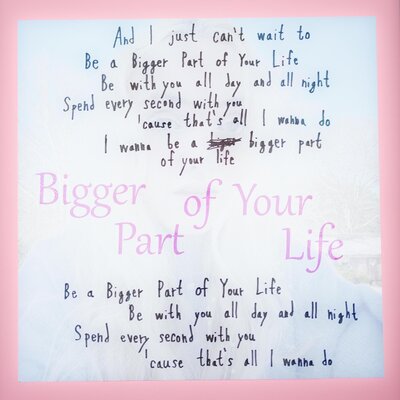 And I just can't wait to
Be a Bigger Part of Your Life
Be with you all day and all night
Spend every second with you
'cause that's all I wanna do
I wanna be a bigger part
of your life
Bigger of Your
Part Life
Be a Bigger Part of Your Life
Be with you all day and all night
Spend every second with you
'cause that's all I wanna do